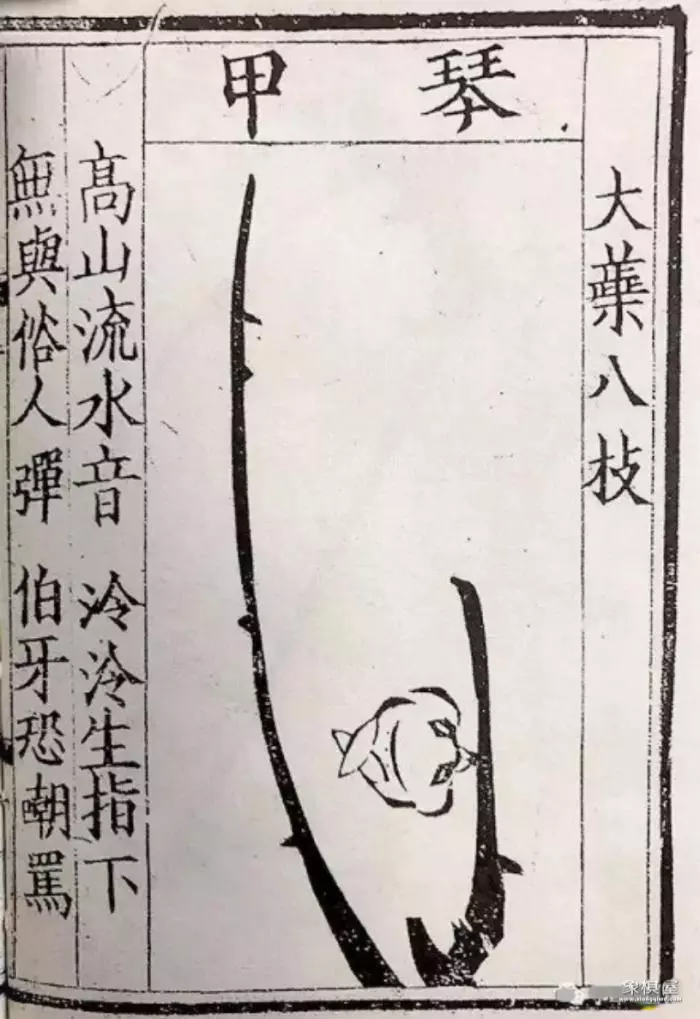 大蘂八枝
琴甲
高山流水音 泠泠生指下
無與俗人彈 伯牙恐嘲罵
象棋屋